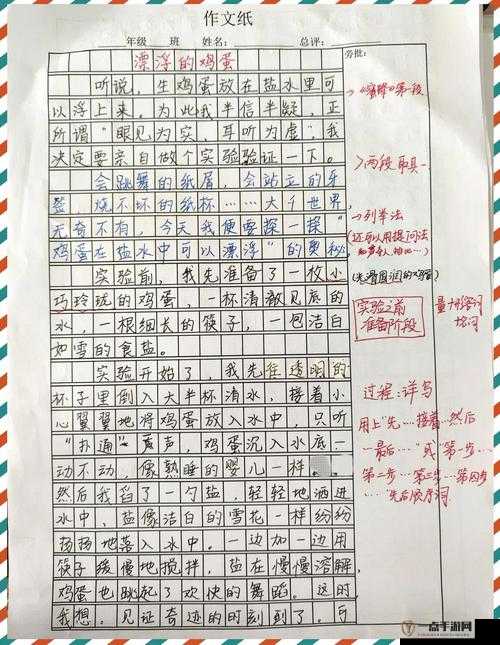 作文纸
年级 班 姓名: 总评:
旁批:
漂浮的鸡蛋
听说,生鸡蛋放在盐水里可
以浮上来。为此我半信半疑,正
所谓“眼见为实,耳听为虚”,我
决定要亲自做个实验验证一下。
会跳舞的纸屑,会站立的牙
签,烧不坏的纸杯……大千世界,
无奇不有,今天我便要探一探“
鸡蛋在盐水中可以漂浮”的奥秘。
实验前,我先准备了一枚小
巧玲珑的鸡蛋,一杯清澈见底的
水,一根细长的筷子,一包洁白
如雪的食盐。
实验开始了,我先往透明的
杯子里倒入大半杯清水,接着小
心翼翼地将鸡蛋放入水中,只听
“扑通”一声,鸡蛋沉入水底一
动不动,像熟睡的婴儿一样。
然后我舀了一勺盐,轻轻地洒进
水中,盐像洁白的雪花一样纷纷
扬扬地落入水中。一边加一边用
筷子缓慢地搅拌,盐在慢慢溶解,
鸡蛋也跳起了欢快的舞蹈。这时
我想:见证奇迹的时刻到了。可
→《蜜蜂》第一段
>两段取其一
→列举法
(还可以用提问法
(光滑圆润的鸡蛋)
实验之前
准备阶段
过程:详写
用上“先…接着…然后
…最后…”或“第一步…
第二步…第三步…第四步
…”先后顺序词
一点手游网